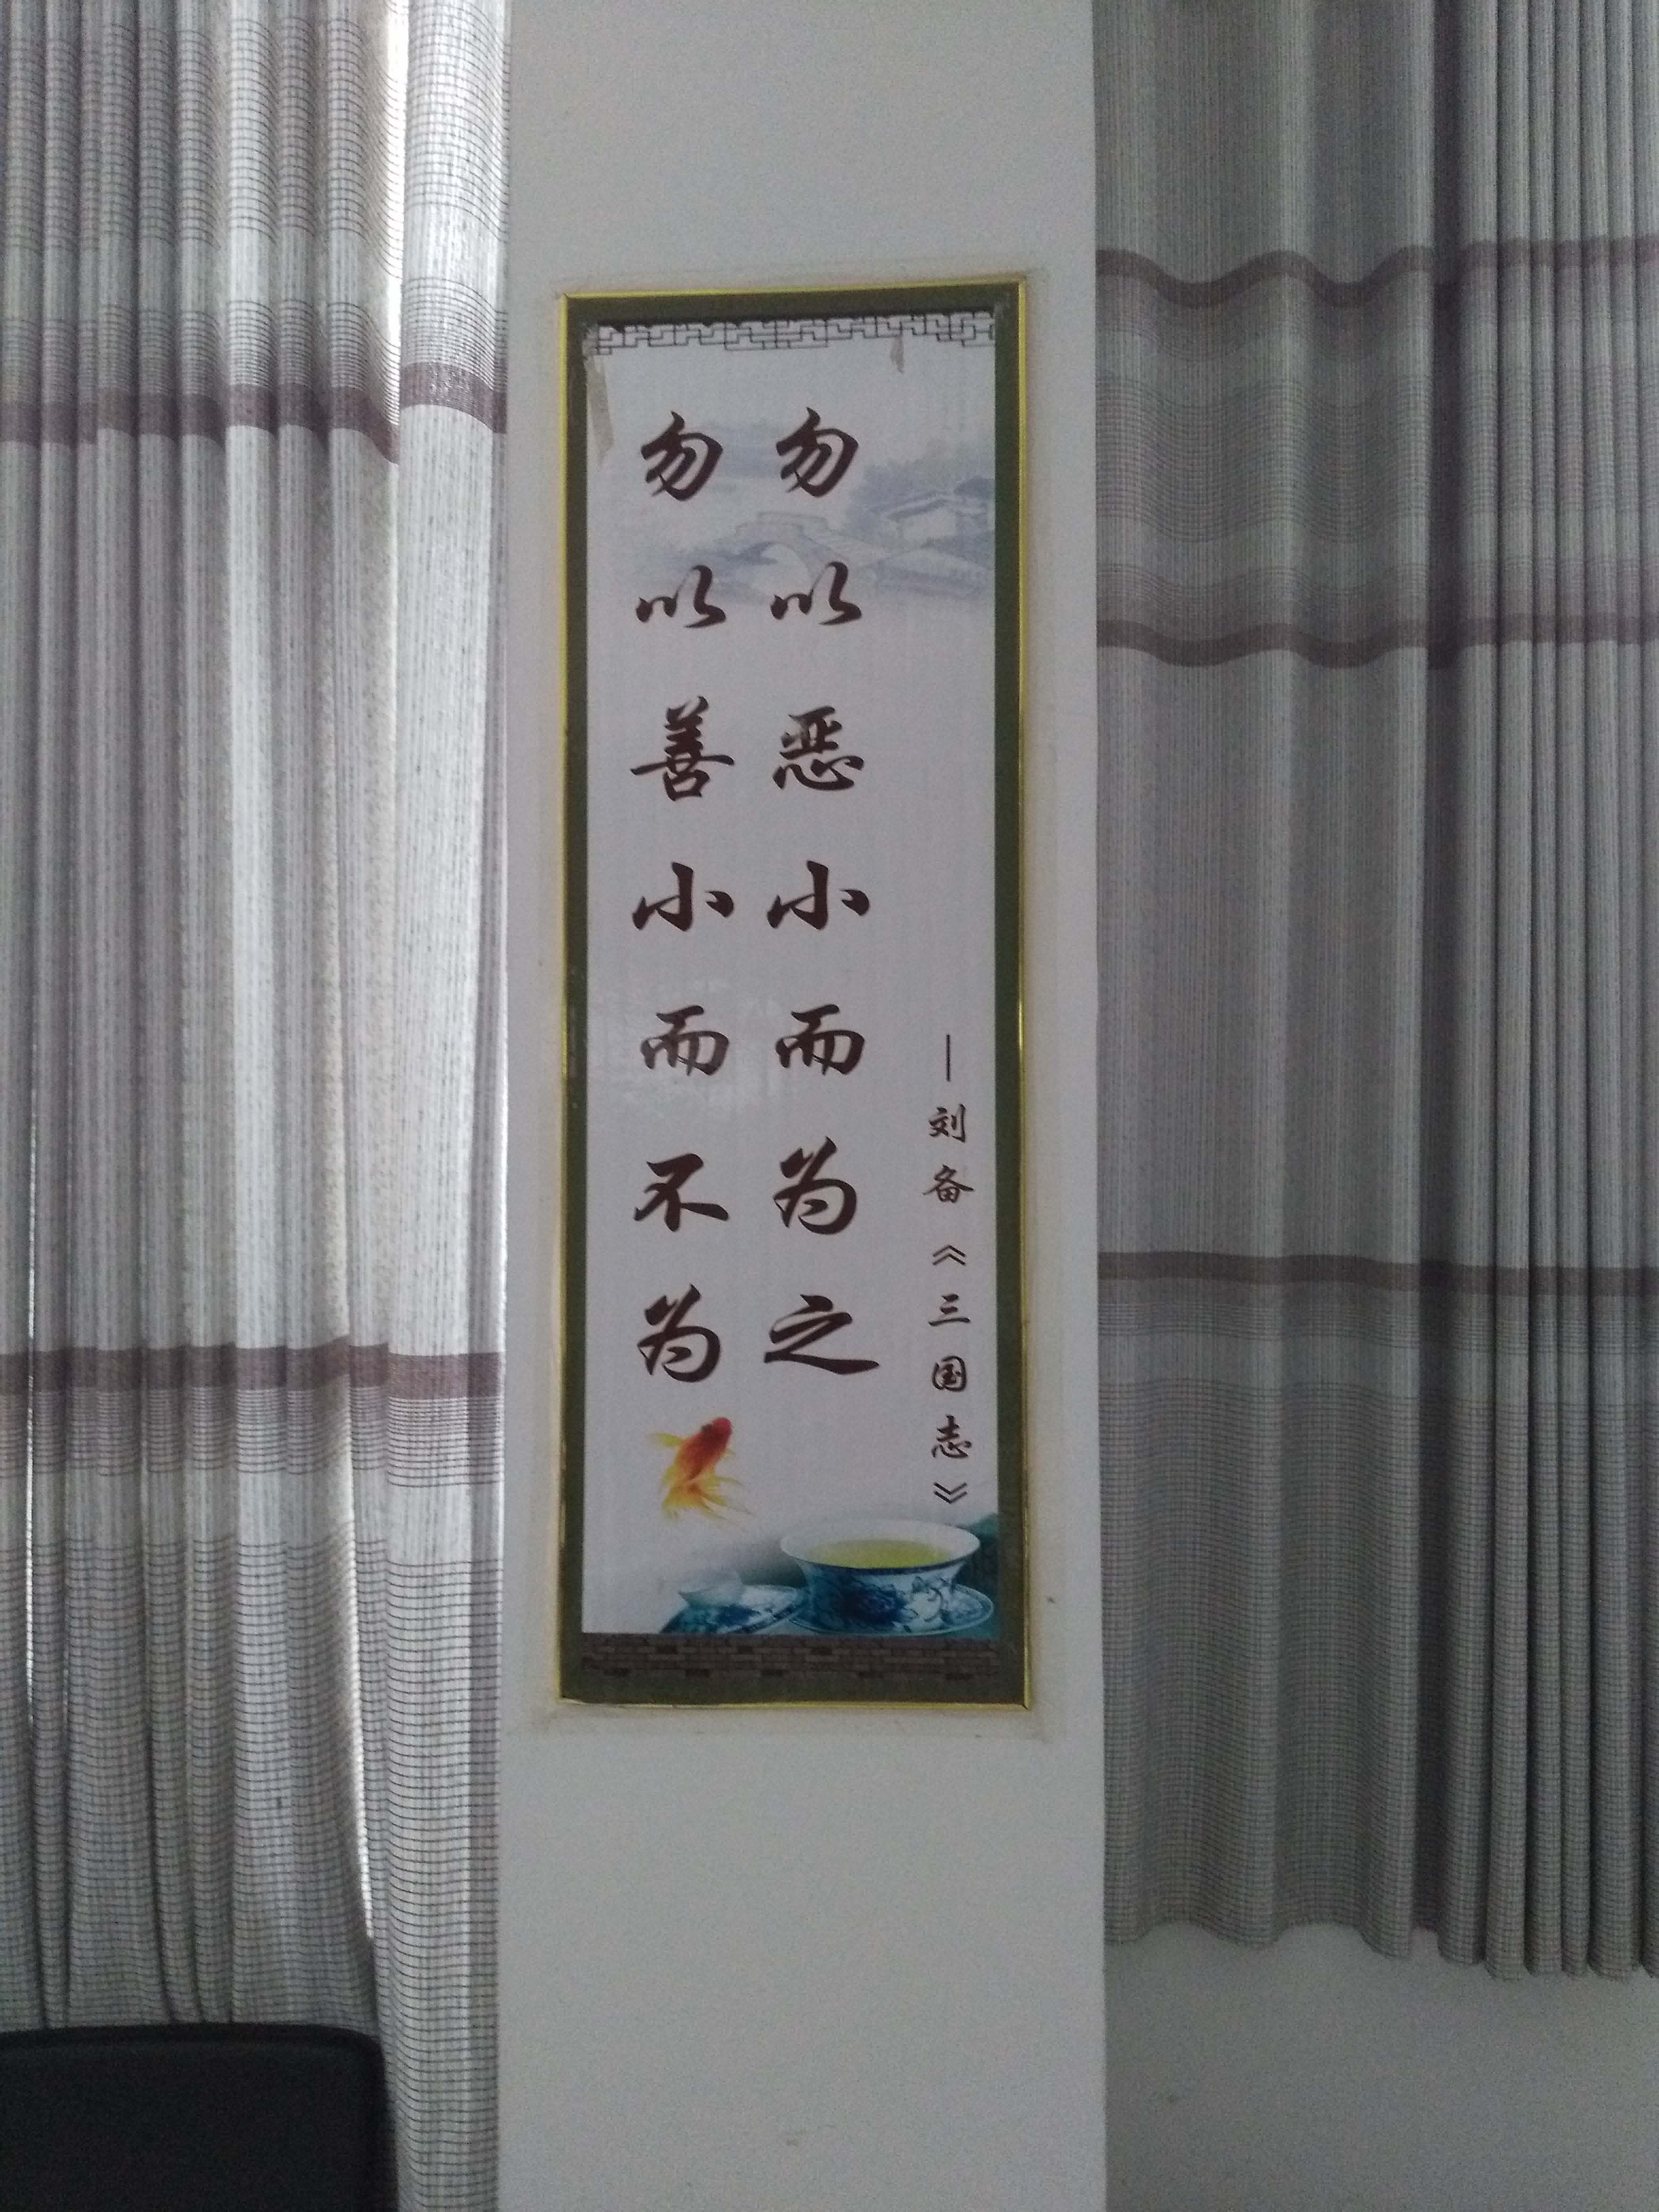 勿以恶小而为之
勿以善小而不为
—刘备《三国志》